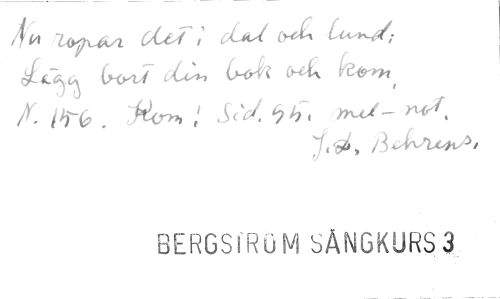 Nu ropar det i dal och lund;
Lägg bort din bok och kom,
N. 156. Kom! Sid. 95. mel-not.
J.D. Behrens.
BERGSTRÖM SÅNGKURS 3